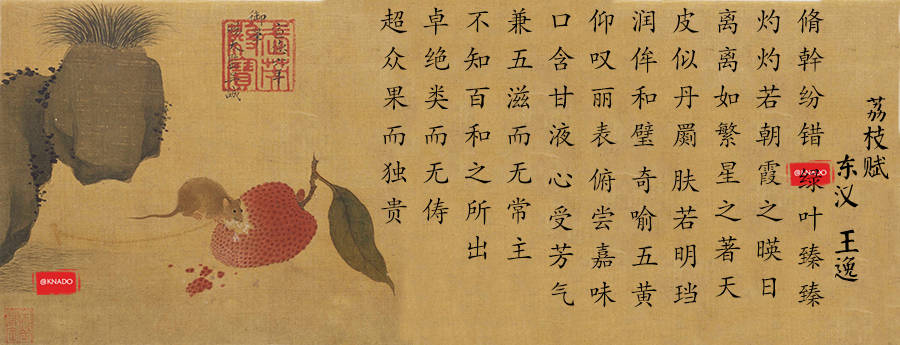 荔枝赋
东汉 王逸
脩幹纷错 绿叶臻臻
灼灼若朝霞之暎日
离离如繁星之著天
皮似丹罽 肤若明珰
润侔和璧 奇喻五黄
仰叹丽表 俯尝嘉味
口含甘液 心受芳气
兼五滋而无常主
不知百和之所出
卓绝类而无俦
超众果而独贵
宣德六年
御笔
@KNADO
@KNADO